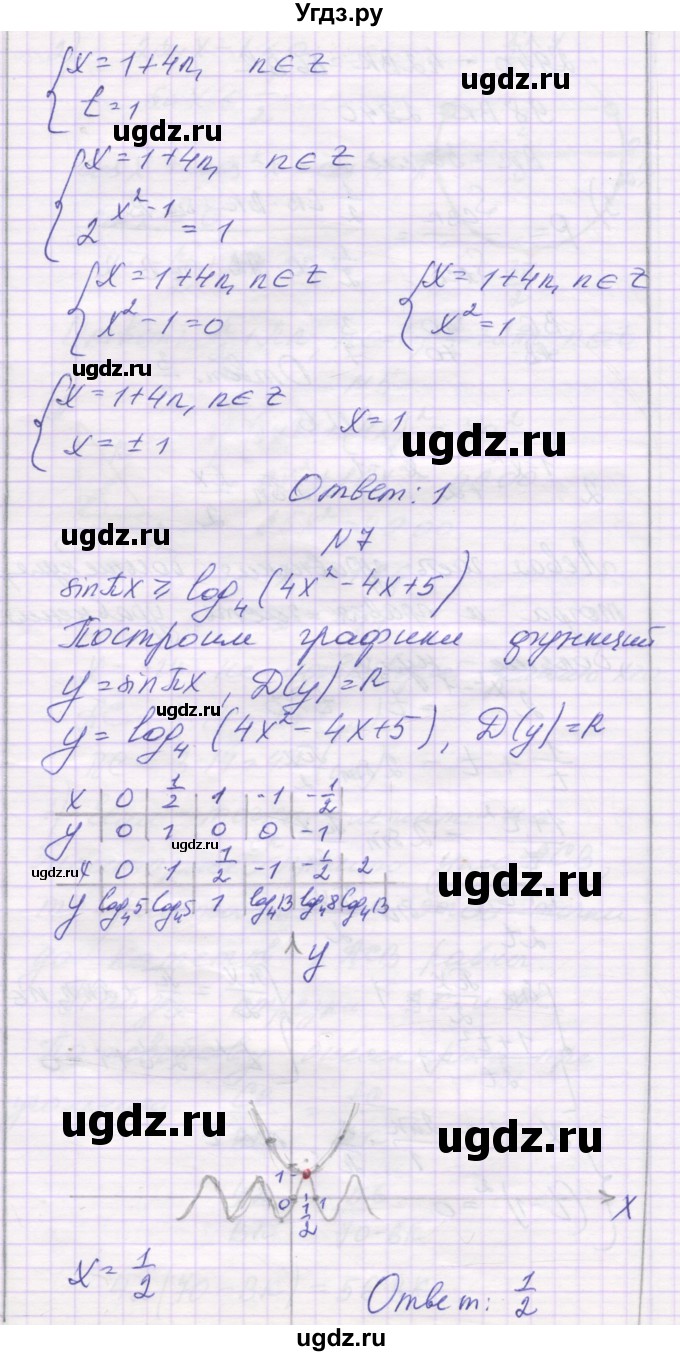 Угдз.ру
x = 1+4n, n ∈ Z
ugdz.ru
t = 1
ugdz.ru
x = 1+4n, n ∈ Z
2^(x²-1) = 1
x = 1+4n, n ∈ Z x = 1+4n, n ∈ Z
x² - 1 = 0 x² = 1
ugdz.ru
x = 1+4n, n ∈ Z
x = ± 1 x = 1
ugdz.ru
Ответ: 1
ugdz.ru N 7
sin πx ≥ log₄ (4x² - 4x + 5)
Построим графики функций
y = sin πx, D(y) = R
ugdz.ru
y = log₄ (4x² - 4x + 5), D(y) = R
x 0 1/2 1 -1 -1/2
y 0 1 0 0 -1
ugdz.ru
ugdz.ru
x 0 1 1/2 -1 -1/2 2
ugdz.ru
y log₄5 log₄5 1 log₄13 log₄8 log₄13
y
ugdz.ru
ugdz.ru
1
0 1/2 1 x
x = 1/2
Ответ: 1/2
ugdz.ru